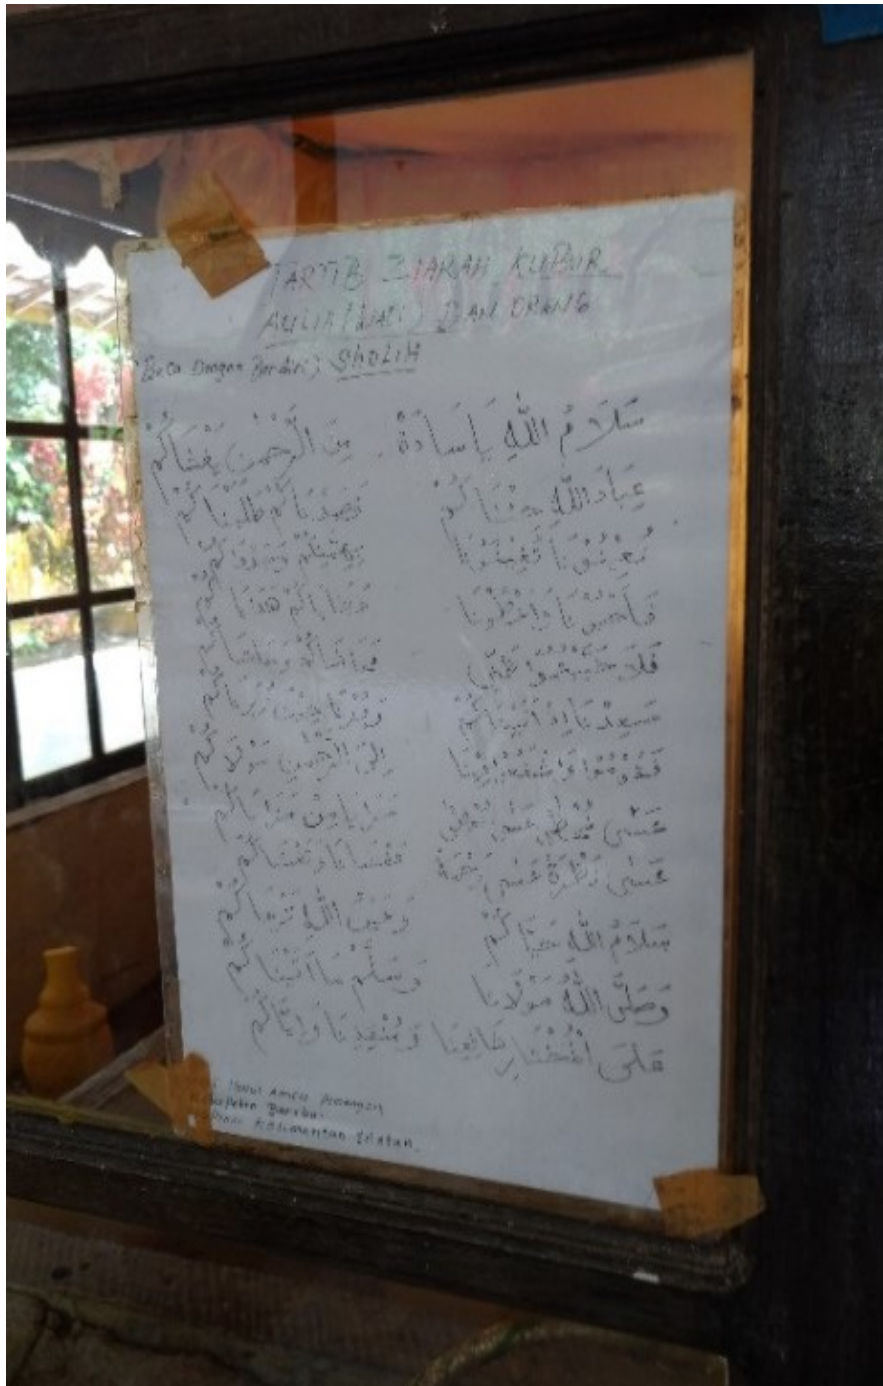 TARTIB ZIARAH KUBUR
AULIA (WALI) DAN ORANG
(Baca Dengan Berdiri) SHOLIH
سَلَامُ اللهِ يَا سَادَةْ مِنَ الرَّحْمٰنِ يَغْشَاكُمْ
عِبَادَ اللهِ جِئْنَاكُمْ قَصَدْنَاكُمْ طَلَبْنَاكُمْ
تُعِيْنُوْنَا تُغِيْثُوْنَا بِهِمَّتِكُمْ وَجَدْوَاكُمْ
فَأَحْبُوْنَا وَاعْطُوْنَا عَطَايَاكُمْ هَدَايَاكُمْ
فَلَا خَيَّبْتُمُوْ ظَنِّي فَحَاشَاكُمْ وَحَاشَاكُمْ
سَعِدْنَا إِذْ أَتَيْنَاكُمْ وَفُزْنَا حِيْنَ زُرْنَاكُمْ
فَقُوْمُوْا وَاشْفَعُوْا فِيْنَا إِلَى الرَّحْمٰنِ مَوْلَاكُمْ
عَسَى نُحْظَى عَسَى نُعْطَى مَزَايَا مِنْ مَزَايَاكُمْ
عَسَى نَظْرَةْ عَسَى رَحْمَةْ تَغْشَانَا وَتَغْشَاكُمْ
سَلَامُ اللهِ حَيَّاكُمْ وَعَيْنُ اللهِ تَرْعَاكُمْ
وَصَلَّى اللهُ مَوْلَانَا وَسَلَّمْ مَا أَتَيْنَاكُمْ
عَلَى الْمُخْتَارِ شَافِعِنَا وَمُنْقِذِنَا وَإِيَّاكُمْ
Kalimantan Selatan